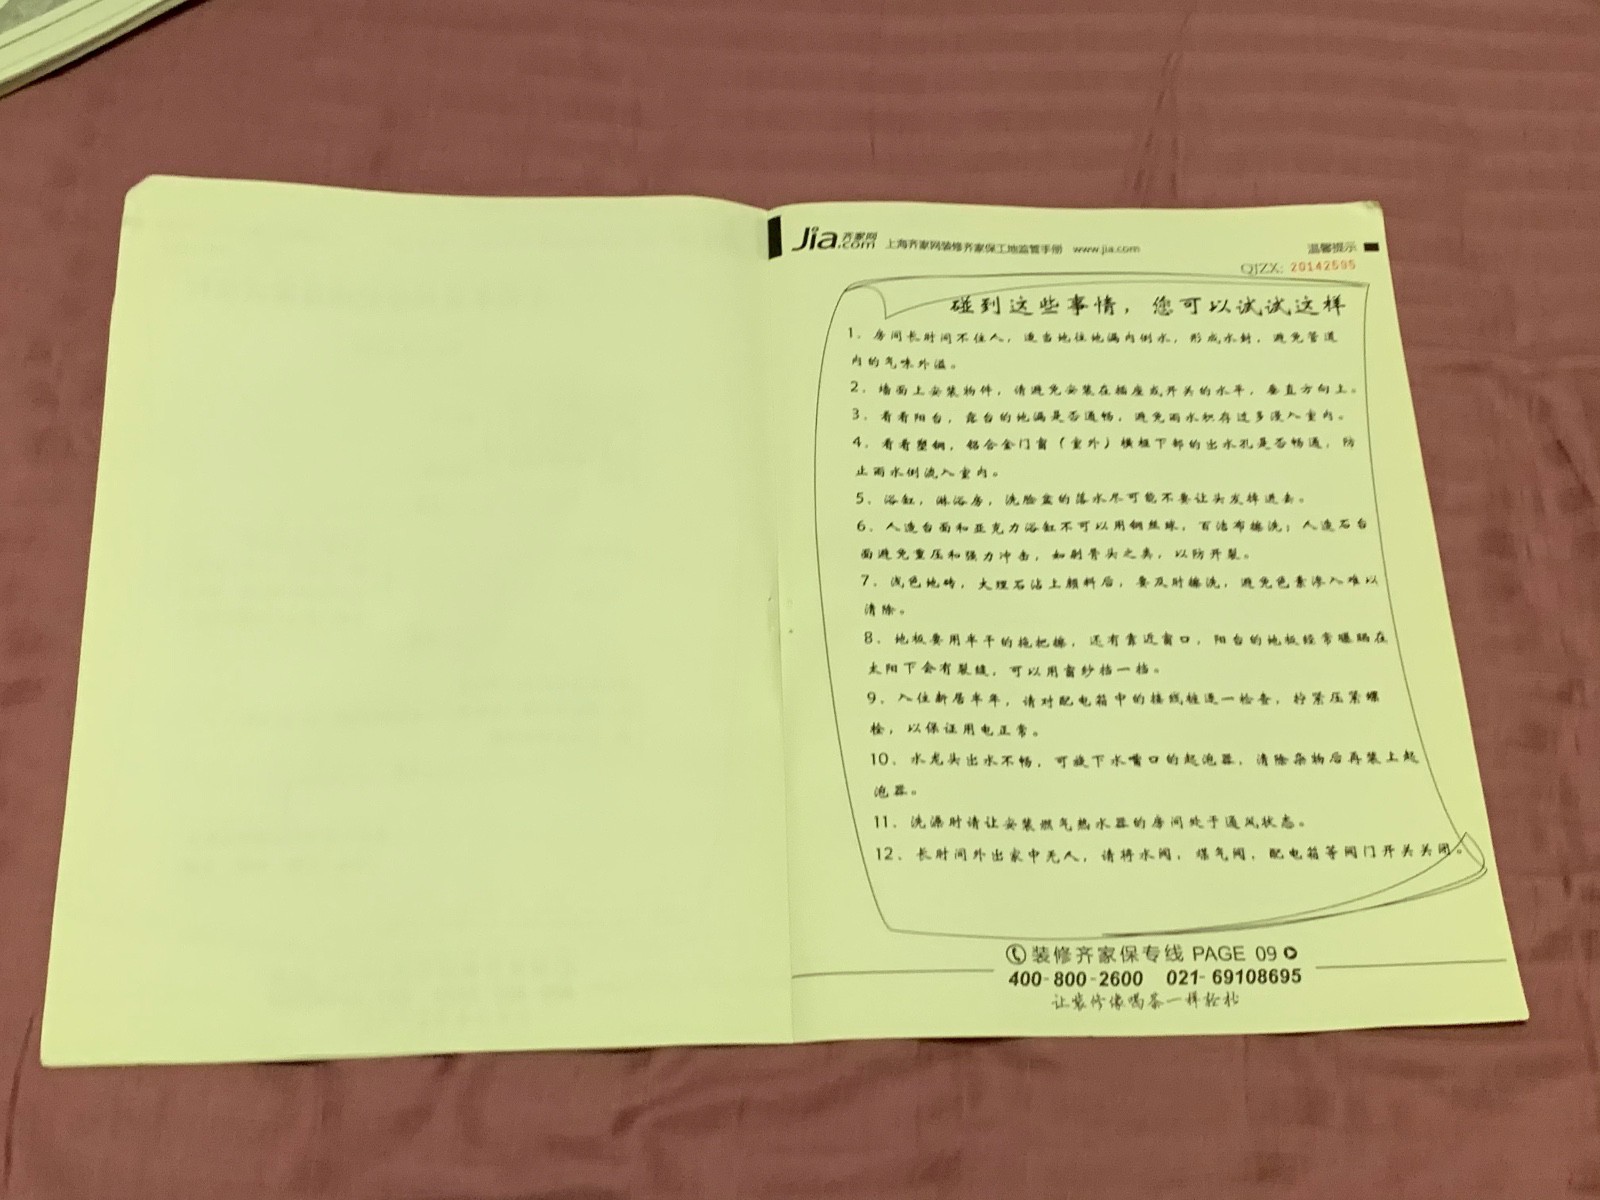 Jia.com 齐家网 上海齐家网装修齐家保工地监管手册 www.jia.com 温馨提示
QJZX: 20142595
碰到这些事情，您可以试试这样
1、房间长时间不住人，适当地往地漏内倒水，形成水封，避免管道
内的气味外溢。
2、墙面上安装物件，请避免安装在插座或开关的水平，垂直方向上。
3、看看阳台，露台的地漏是否通畅，避免雨水积存过多漫入室内。
4、看看塑钢，铝合金门窗（室外）横框下部的出水孔是否畅通，防
止雨水倒流入室内。
5、浴缸，淋浴房，洗脸盆的落水尽可能不要让头发掉进去。
6、人造台面和亚克力浴缸不可以用钢丝球，百洁布擦洗；人造石台
面避免重压和强力冲击，如剁骨头之类，以防开裂。
7、浅色地砖，大理石沾上颜料后，要及时擦洗，避免色素渗入难以
清除。
8、地板要用半干的拖把擦，还有靠近窗口，阳台的地板经常曝晒在
太阳下会有裂缝，可以用窗纱档一档。
9、入住新居半年，请对配电箱中的接线桩逐一检查，拧紧压紧螺
栓，以保证用电正常。
10、水龙头出水不畅，可旋下水嘴口的起泡器，清除杂物后再装上起
泡器。
11、洗澡时请让安装燃气热水器的房间处于通风状态。
12、长时间外出家中无人，请将水阀，煤气阀，配电箱等阀门开关关闭。
装修齐家保专线 PAGE 09
400-800-2600 021-69108695
让装修像喝茶一样轻松